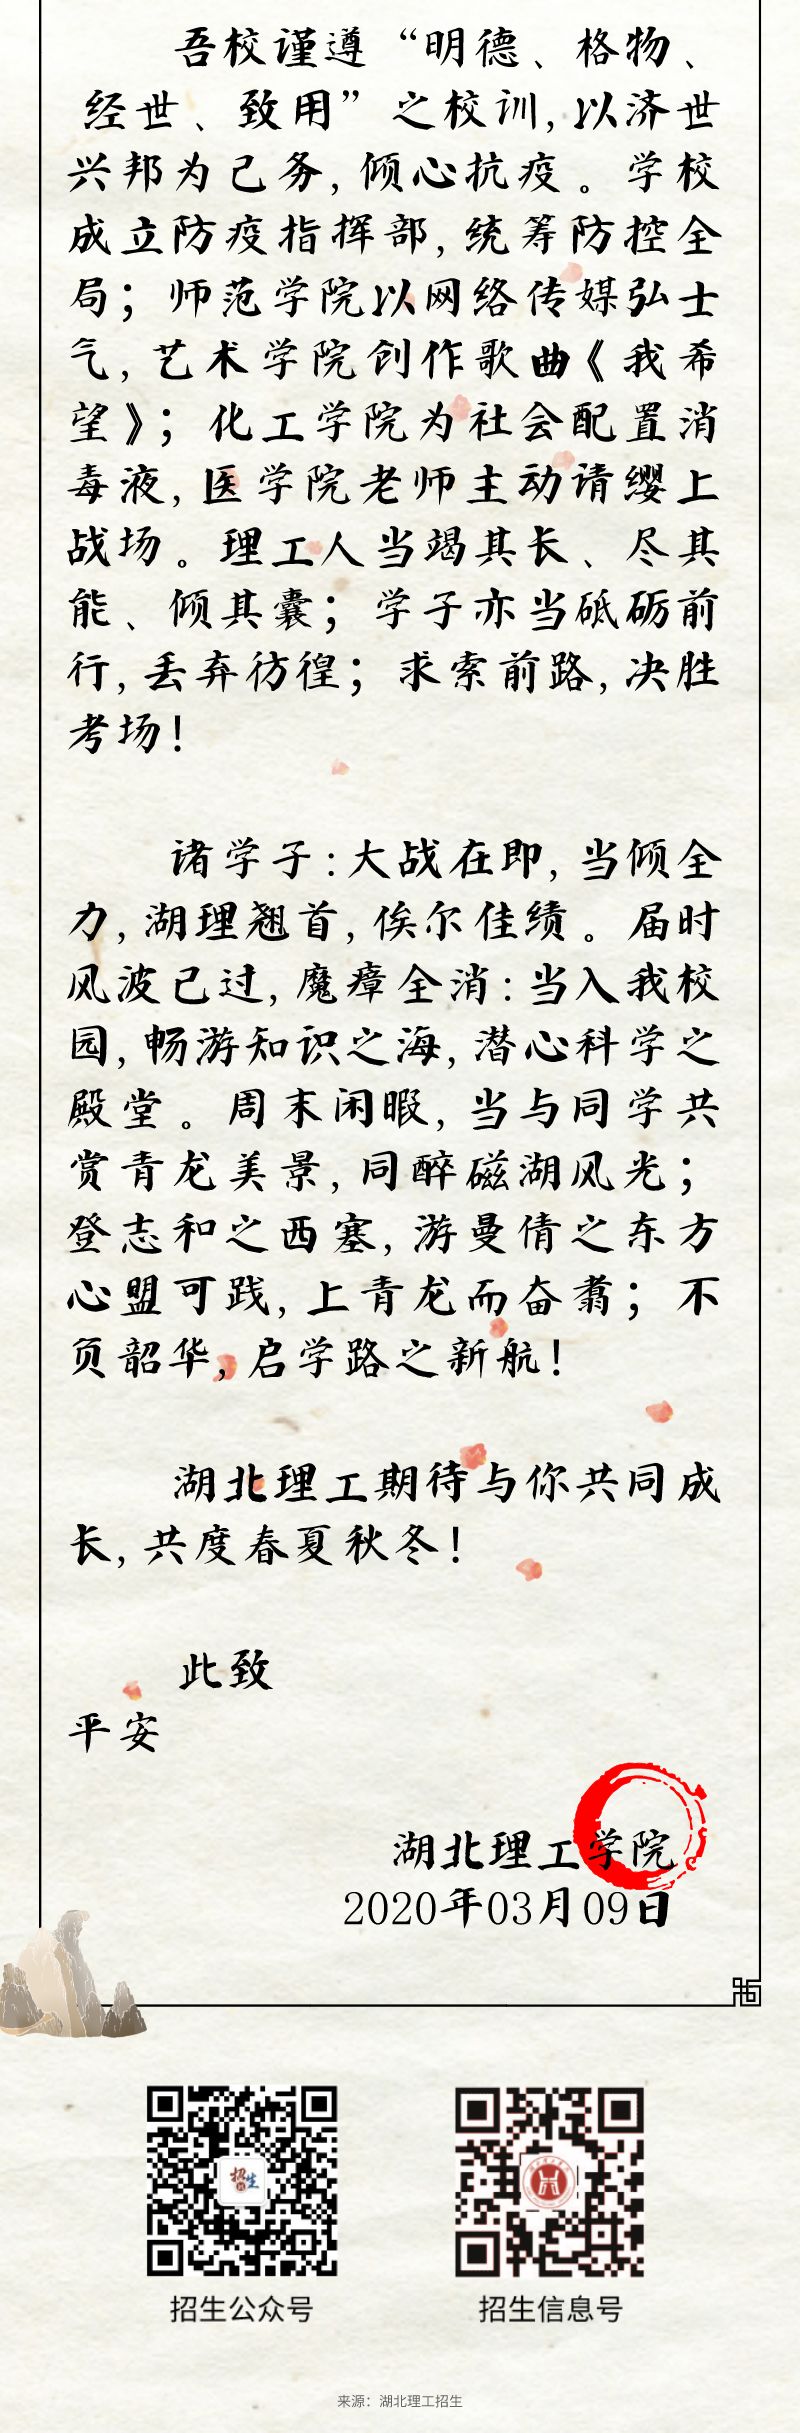 吾校谨遵“明德、格物、
经世、致用”之校训,以济世
兴邦为己务,倾心抗疫。学校
成立防疫指挥部,统筹防控全
局;师范学院以网络传媒弘士
气,艺术学院创作歌曲《我希
望》;化工学院为社会配置消
毒液,医学院老师主动请缨上
战场。理工人当竭其长、尽其
能、倾其囊;学子亦当砥砺前
行,丢弃彷徨;求索前路,决胜
考场!
诸学子:大战在即,当倾全
力,湖理翘首,俟尔佳绩。届时
风波已过,魔瘴全消:当入我校
园,畅游知识之海,潜心科学之
殿堂。周末闲暇,当与同学共
赏青龙美景,同醉磁湖风光;
登志和之西塞,游曼倩之东方
心盟可践,上青龙而奋翥;不
负韶华,启学路之新航!
湖北理工期待与你共同成
长,共度春夏秋冬!
此致
平安
湖北理工学院
2020年03月09日
招生
招生公众号
招生信息号
来源：湖北理工招生